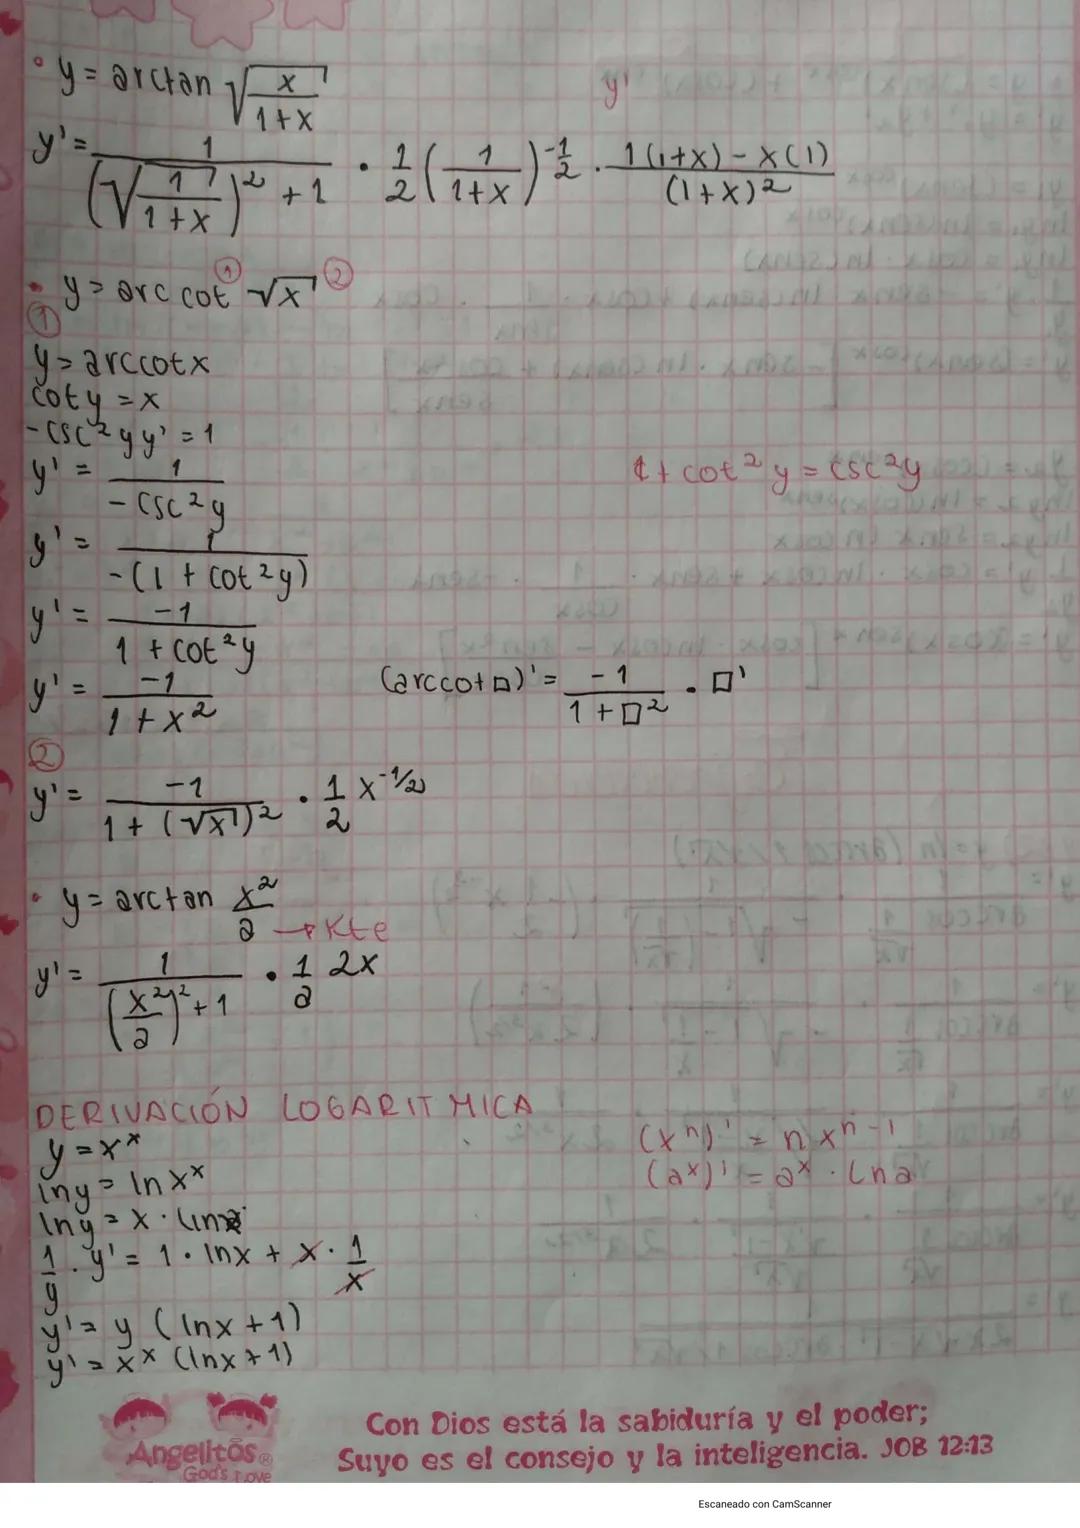 • y = arctan √(x/(1+x)) y'
y' = 1/((√(1/(1+x)))² + 1) • 1/2 (1/(1+x))^(-1/2) · (1(1+x) - x(1))/(1+x)²
• y = arc cot ① √x ②
①
y = arccotx
coty = x
-csc²y y' = 1
y' = 1/(-csc²y) 1 + cot²y = csc²y
y' = 1/(-(1 + cot²y))
y' = -1/(1 + cot²y)
y' = -1/(1 + x²) (arccot□)' = -1/(1 + □²) • □'
②
y' = -1/(1 + (√x)²) • 1/2 x^(-1/2)
• y = arctan x²/2 → Kte
y' = 1/((x²/2)² + 1) • 1/2 2x
DERIVACIÓN LOGARITMICA
y = x^x (x^n)' = n x^(n-1)
lny = ln x^x (a^x)' = a^x · Lna
lny = x · lnx
1/y · y' = 1 • lnx + x · 1/x
y' = y (lnx + 1)
y' = x^x (lnx + 1)
Angelitos®
God's Love
Con Dios está la sabiduría y el poder;
Suyo es el consejo y la inteligencia. JOB 12:13
Escaneado con CamScanner